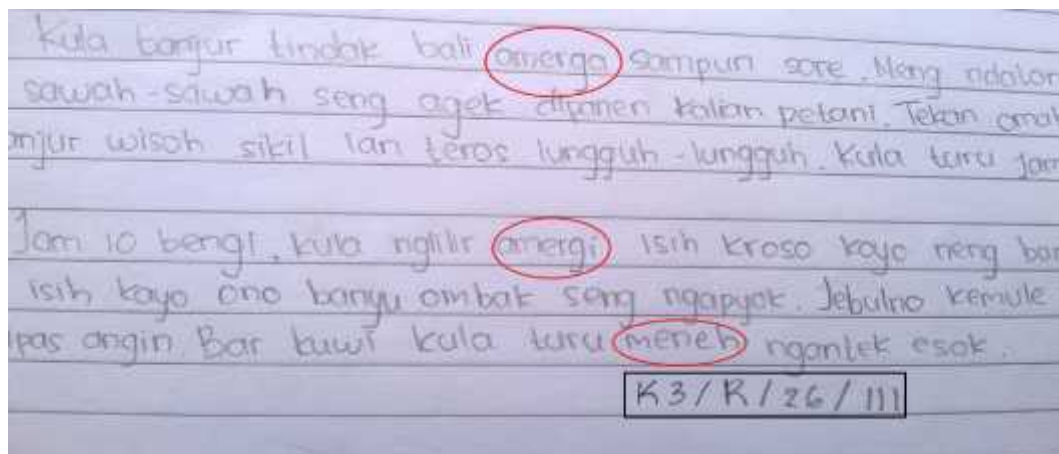 Kula banjur tindak bali amerga sampun sore. Meng ndalan
sawah-sawah seng agek dipanen kalian petani. Tekan omah
anjur wisoh sikil lan teros lungguh-lungguh. Kula turu jam
Jam 10 bengi, kula nglilir amergi isih kroso koyo neng ban
isih koyo ono banyu ombak seng ngapyok. Jebulno kemule
ipas angin. Bar kuwi kula turu meneh ngantek esok.
K3/R/26/111